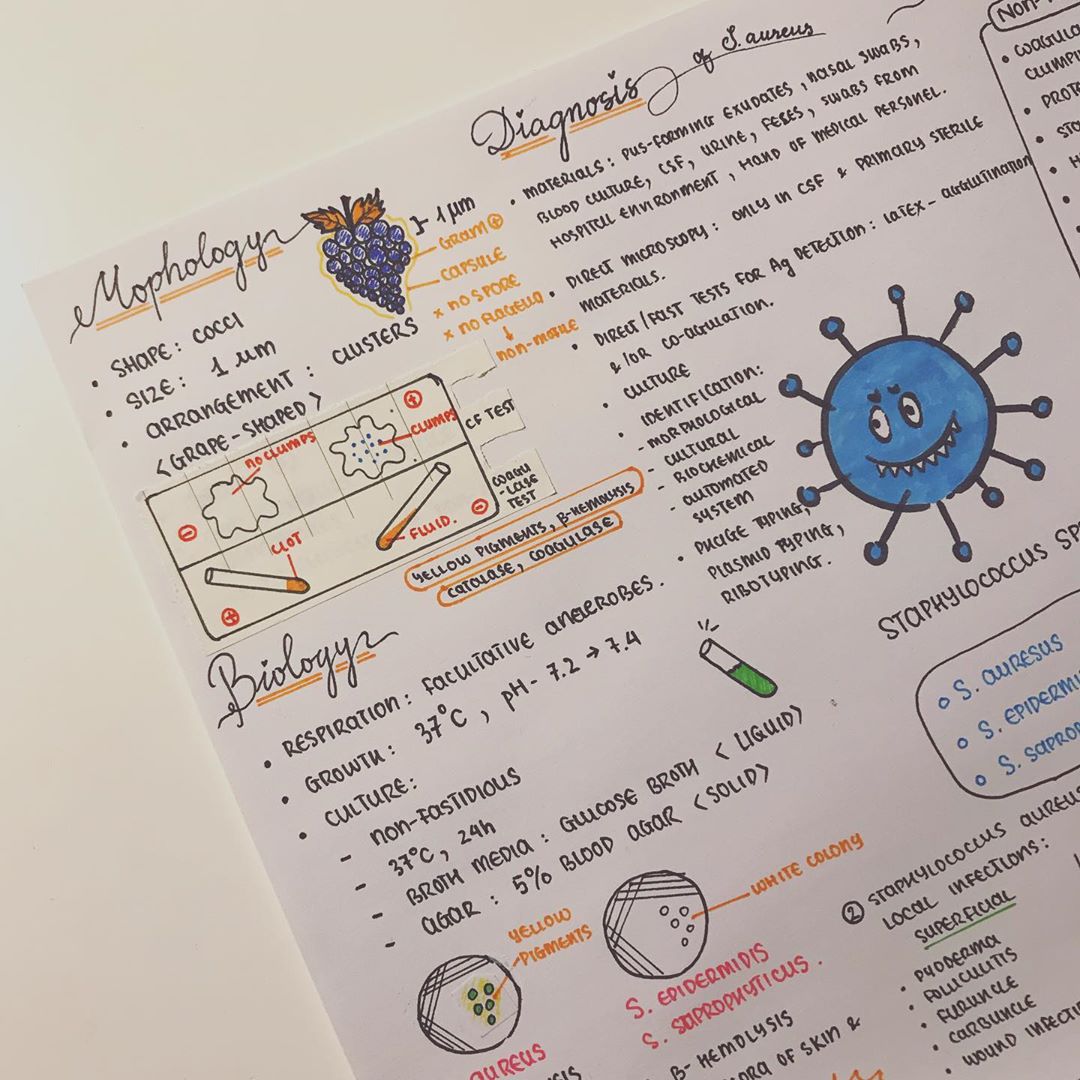 Mophology
SHAPE: COCCI
SIZE: 1 µm
ARRANGEMENT: CLUSTERS
<GRAPE-SHAPED>
} 1 µm
GRAM ⊕
CAPSULE
x NO SPORE
x NO FLAGELLA
↓
NON-MOTILE
NO CLUMPS
CLUMPS
CF TEST
⊖
⊕
CLOT
FLUID.
COAGU
-LASE
TEST
⊕
⊖
YELLOW PIGMENTS, β-HEMOLYSIS
CATALASE, COAGULASE
Diagnosis of S. aureus
• MATERIALS: PUS-FORMING EXUDATES, NASAL SWABS,
BLOOD CULTURE, CSF, URINE, FECES, SWABS FROM
HOSPITAL ENVIRONMENT, HAND OF MEDICAL PERSONEL.
• DIRECT MICROSCOPY: ONLY IN CSF & PRIMARY STERILE
MATERIALS.
• DIRECT/FAST TESTS FOR Ag DETECTION: LATEX-AGGLUTINATION
&/OR CO-AGULATION.
• CULTURE
• IDENTIFICATION:
- MORPHOLOGICAL
- CULTURAL
- BIOCHEMICAL
- AUTOMATED
SYSTEM
• PHAGE TYPING,
PLASMID TYPING,
RIBOTYPING.
Biology
• RESPIRATION: FACULTATIVE ANAEROBES.
• GROWTH: 37°C, pH - 7.2 → 7.4
• CULTURE:
- NON-FASTIDIOUS
- 37°C, 24h
- BROTH MEDIA: GLUCOSE BROTH <LIQUID>
- AGAR: 5% BLOOD AGAR <SOLID>
YELLOW
PIGMENTS
WHITE COLONY
S. EPIDERMIDIS
S. SAPROPHYTICUS.
AUREUS
β- HEMOLYSIS
OF SKIN &
STAPHYLOCOCCUS SP
S. AURESUS
S. EPIDERMI
S. SAPRO
② STAPHYLOCOCCUS AUREUS
LOCAL INFECTIONS:
SUPERFICIAL
• PYODERMA
• FOLLICULITIS
• FURUNCLE
• CARBUNCLE
• WOUND INFECTI
NON-
• COAGULA
CLUMPI
• PROTE
• STA
• H